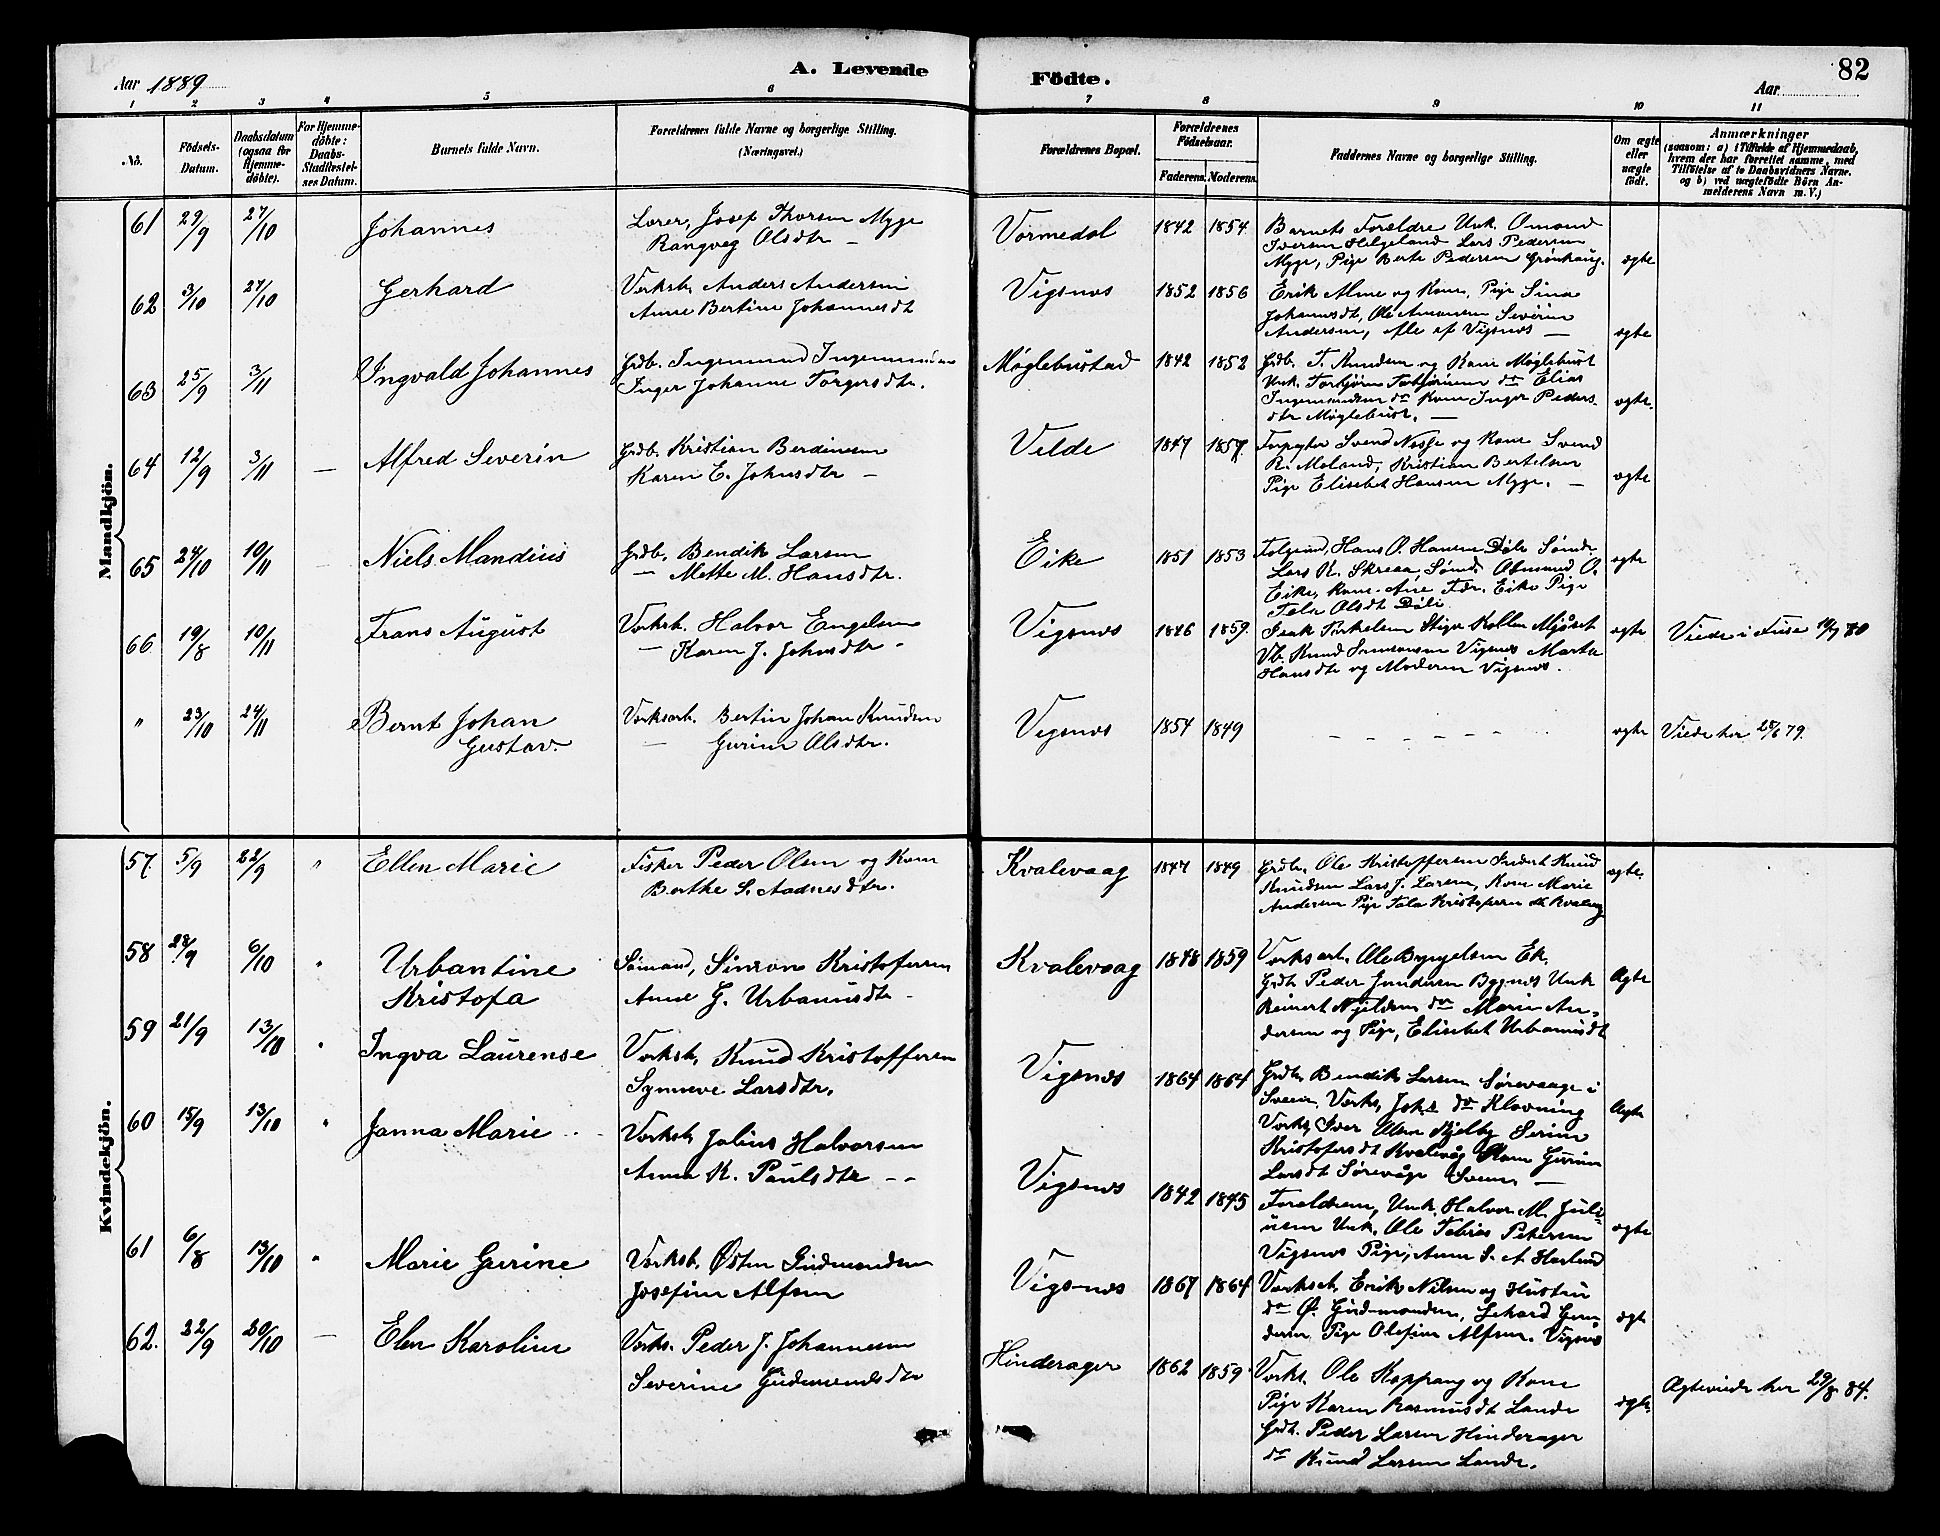 Aar 1889
A. Levende
Födte.
82
Aar
1 2 3 4 5 6 7 8 9 10 11
No.
Födsels-Datum.
Daabsdatum (ogsaa for Hjemme-döbte).
For Hjemme-döbte: Daabs-Stadfæstel-ses Datum.
Barnets fulde Navn.
Forældrenes fulde Navne og borgerlige Stilling.
(Næringsvei.)
Forældrenes Bopæl.
Forældrenes Födselsaar.
Faderens. Moderens.
Faddernes Navne og borgerlige Stilling.
Om ægte eller uægte födt.
Anmærkninger
(saasom: a) i Tilfælde af Hjemmedaab,
hvem der har forrettet samme, med
Tilföielse af to Daabsvidners Navne.
og b) ved uægtefödte Börn An-
melderens Navn m. V.)
Mandkjön.
61 29/9 27/10 Johannes
Lærer, Josef Thorsen Myge
Rangveg Olsdtr —
Vormedal 1842 1854
Barnets Forældre Unk. Omond
Iversen Helgeland Lars Pedersen
Myge, Pige Berte Pedersen Grønhaug.
ægte
62 3/10 27/10 Gerhard
Verksb. Anders Andersen
Anne Bertine Johannesdt
Vigsnæs 1852 1856
Erik Alme og Kone, Pige Sina
Johannesdt, Ole Amonsen Severin
Andersen, Alle af Vigsnæs —
ægte
63 25/9 3/11 Ingvald Johannes
Grdb. Ingemund Ingemundsen
Inger Johanne Torgersdtr.
Møglebustad 1842 1852
Grdb. T. Knudsen og Kone Møglebust
Unk. Torbjørn Torbjørnsen do Elias
Ingemundsen do Kone Inger Peders-
dtr Møglebust. —
ægte.
64 12/9 3/11 — Alfred Severin
Grdb. Kristian Berdinesen
Karen E. Johnsdtr —
Velde 1847 1857
Forpagter Svend Nesse og Kone Svend
R. Meland, Kristian Bertelsen
Pige Elisebet Hansen Myge. —
ægte
65 24/10 10/11 — Niels Mandius
Grdb. Bendik Larsen
— Mette M. Hansdtr.
Eike 1851 1853
Hans O. Hansen Døle Sømd.
Lars K. Skreaa, Sømd. Osmund O.
Eike, Kone Ane Eike Pige
Tala Olsdt Døli
ægte
66 19/8 10/11 Frans August
Verksb. Halvor Engelsen
— Karen J. Johnsdtr -
Vigsnæs 1846 1859.
Isak Torkelsen Stiger Kollen Mjøset
Vb. Knud Simonsen Vigsnæs Marta
Hansdtr og Moderen Vigsnæs.
ægte
Viede i Fuse 80
" 23/10 24/11 Bernt Johan
Gustav.
Verksarb. Bertin Johan Knudsen
— Gurine Olsdtr.
Vigsnæs 1854 1849
— — — — — —
ægte
Viede her 25/6 79.
Kvindekjön.
57. 5/9 22/9 " Ellen Marie
Fisker Peder Olsen og Kone
Berthe S. Aadnesdtr.
Kvalevaag 1847 1849
Grdbr. Ole Kristoffersen Inderst Knud
Knudsen Lars J. Larsen, Kone Marie
Andersen Pige Tala Kristofersen Kvalevg
ægte.
58 28/9 6/10 " Urbantine
Kristofa
Sømand, Simon Kristofersen
Anne G. Urbanusdtr -
Kvalevaag 1848 1859
Verksarb. Ole Ek.
Grdb Peder Gundersen Bygnes Unk
Reinert Njeldsen do Marie An-
dersen og Pige, Elisebet Urbanusdt
Ægte
59 21/9 13/10 " Ingva Laurense
Verksb. Knud Kristoffersen
Synneve Larsdtr,
Vigsnæs 1864 1864
Grdbr. Bendik Larsen Sørevaage i
Sveen, Verks, Johs do Kløvning
Verks, Iver Olsen Serine
Kristofersdt Kvalevåg Kone Gurine
Larsdt Sørevåge Sveen —
Ægte
60 15/9 13/10 " Janna Marie
Verksb, Julius Halvorsen
Anna K. Paulsdtr - -
Vigsnæs 1842 1845
Forældrene, Unk. Halvor M. Juli-
usen Unk. Ole Tobias Petersen
Vigsnæs Pige, Anne S. A.
ægte
61 6/8 13/10 " Marie Gurine
Verksb. Østen Gudmundsen
Josefine Alfsen
Vigsnæs 1867 1864
Verksb, Erik Nilsen og Hustru
do Ø. Gudmundsen, Gun-
dersen Pige Olefine Alfsen. Vigsnæs
ægte
62. 22/9 20/10 — Elen Karoline
Verks. Peder J. Johannesen
Severine Gudmundsdtr
Hinderager 1862 1859
Verks. Ole Koppang og Kone
Pige Karen Rasmusdt Lande
Grdb. Peder Larsen Hinderager
do Knud Larsen Lande.
ægte.
Ægteviede her 29/8 84.